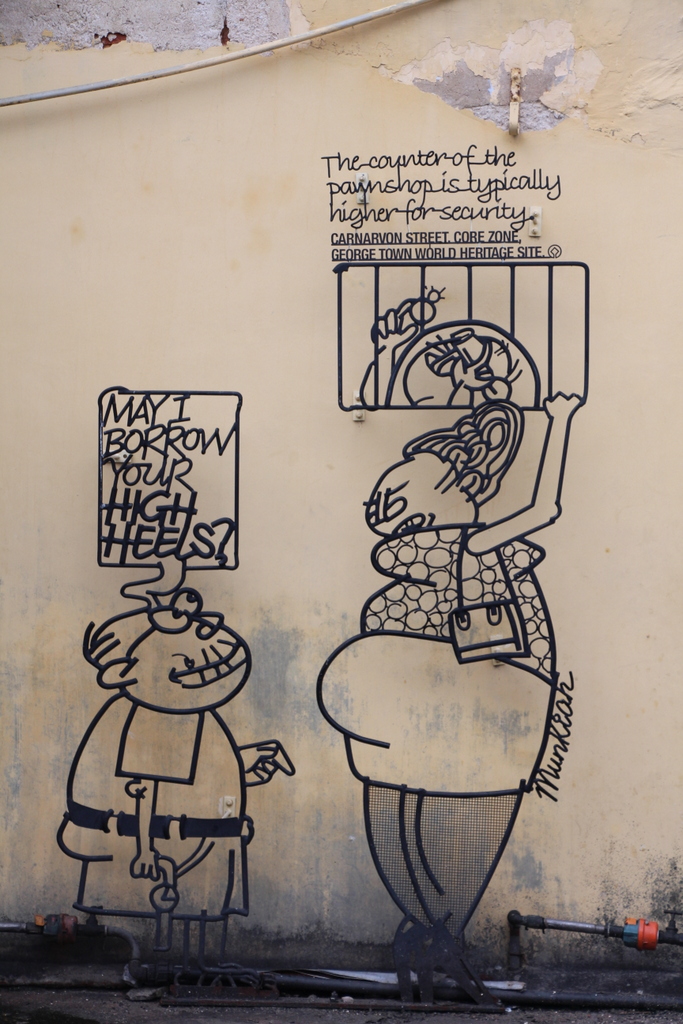 The counter of the
pawnshop is typically
higher for security.
CARNARVON STREET, CORE ZONE,
GEORGE TOWN WORLD HERITAGE SITE.
MAY I
BORROW
YOUR
HIGH
HEELS?
Munkiah